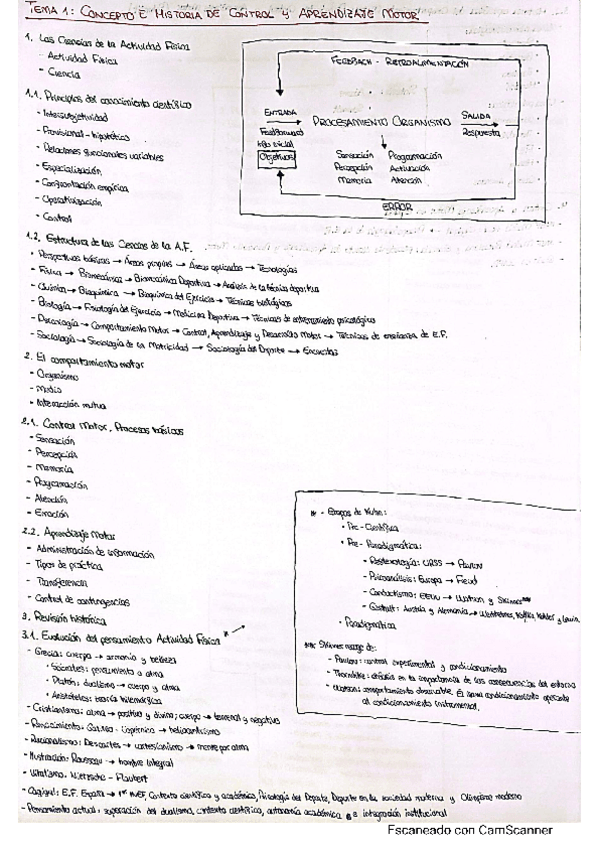 TEMA 1: CONCEPTO E HISTORIA DE CONTROL Y APRENDIZAJE MOTOR
1. Las Ciencias de la Actividad Física
- Actividad Física
- Ciencia
1.1. Principios del conocimiento científico
- Intersubjetividad
- Provisional - hipotético
- Relaciones funcionales variables
- Especialización
- Confrontación empírica
- Operativización
- Control
FEEDBACK - RETROALIMENTACIÓN
ENTRADA
Feedforward
Info inicial
Objetivos
PROCESAMIENTO ORGANISMO
Sensación Programación
Percepción Activación
Memoria Atención
SALIDA
Respuesta
ERROR
1.2. Estructura de las Ciencias de la A.F.
• Perspectivas básicas → Áreas propias → Áreas aplicadas → Tecnologías
- Física → Biomecánica → Biomecánica Deportiva → Análisis de la técnica deportiva
- Química → Bioquímica → Bioquímica del Ejercicio → Técnicas biológicas
- Biología → Fisiología del Ejercicio → Medicina Deportiva → Técnicas de entrenamiento psicológico
- Psicología → Comportamiento Motor → Control, Aprendizaje y Desarrollo Motor → Técnicas de enseñanza de E.F.
- Sociología → Sociología de la Motricidad → Sociología del Deporte → Encuestas
2. El comportamiento motor
- Organismo
- Medio
- Interacción mutua
2.1. Control Motor. Procesos básicos
- Sensación
- Percepción
- Memoria
- Programación
- Atención
- Emoción
2.2. Aprendizaje Motor
- Administración de información
- Tipos de práctica
- Transferencia
- Control de contingencias
3. Revisión histórica
3.1. Evolución del pensamiento Actividad Física * →
- Grecia: cuerpo → armonía y belleza
• Sócrates: pensamiento o alma
• Platón: dualismo → cuerpo y alma
• Aristóteles: teoría hilemórfica
- Cristianismo: alma → positivo y divino; cuerpo → terrenal y negativo
- Renacimiento: Galileo - Copérnico → heliocentrismo
- Racionalismo: Descartes → cartesianismo → mente por alma
- Ilustración: Rousseau → hombre integral
- Vitalismo: Nietzsche - Flaubert
- E.F. España → 1er INEF, Contexto científico y académico, Psicología del Deporte, Deporte en la sociedad moderna y Olimpismo moderno
- Pensamiento actual: superación del dualismo, contexto científico, autonomía académica e integración institucional
* - Etapas de Kuhn:
• Pre-Científica
• Pre-Paradigmática:
- Reflexología: URSS → Pavlov
- Psicoanálisis: Europa → Freud
- Conductismo: EEUU → Watson y Skinner**
- Gestalt: Austria y Alemania → Wertheimer, Koffka, Köhler y Lewin
• Paradigmática
** Skinner recoge de:
- Pavlov: control experimental y condicionamiento
- Thorndike: énfasis en la importancia de las consecuencias del entorno
- Watson: comportamiento observable. El condicionamiento operante
al condicionamiento instrumental.
Escaneado con CamScanner